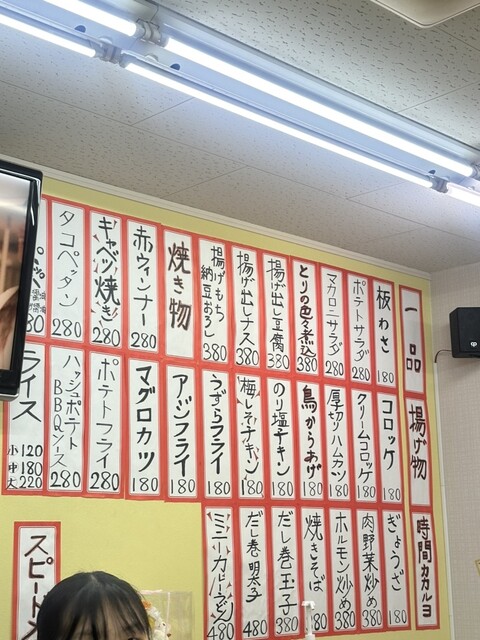 一品
板わさ 180
ポテトサラダ 280
マカロニサラダ 280
とりの色々煮込 380
揚げ出し豆腐 380
揚げ出しナス 380
揚げもち納豆おろし 380
焼き物
赤ウィンナー 280
キャベツ焼き 280
タコペッタン 280
揚げ物
コロッケ 180
クリームコロッケ 180
厚切りハムカツ 180
鳥からあげ 180
のり塩チキン 180
梅しそチキン 180
うずらフライ 180
アジフライ 180
マグロカツ 180
ポテトフライ 280
ハッシュポテト
BBQソース 280
ライス
小 120
中 180
大 220
時間カカルヨ
ぎょうざ 180
肉野菜炒め 380
ホルモン炒め 380
焼きそば 380
だし巻玉子 380
だし巻明太子 480
480
スピード